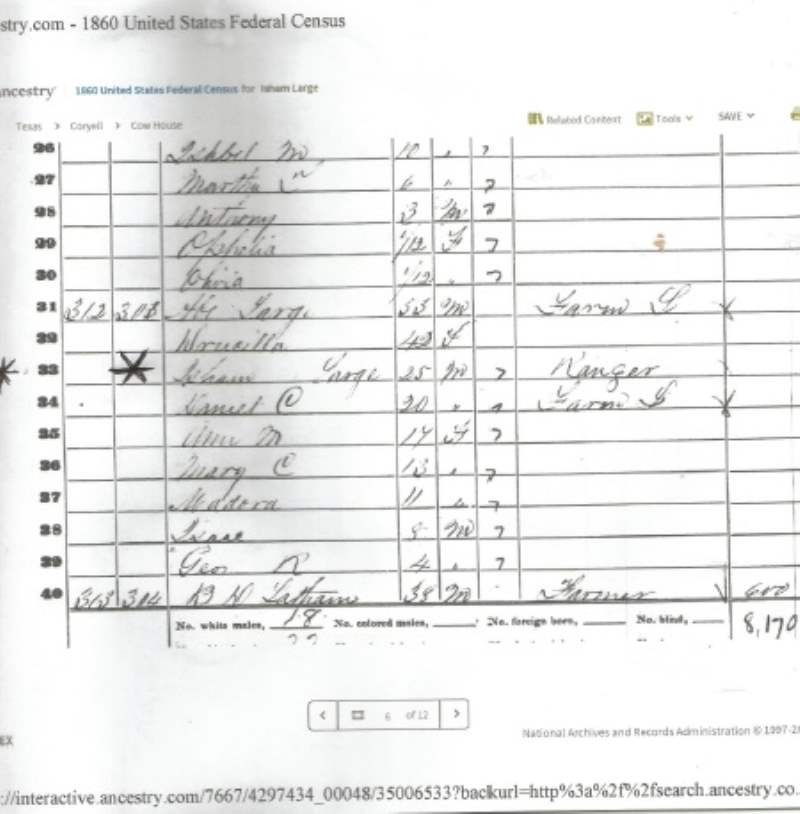 stry.com - 1860 United States Federal Census
ancestry 1860 United States Federal Census for Isham Large
Texas > Coryell > Cow House
Related Content Tools SAVE
26 M 10 " ?
27 Martha 6 " ?
28 Anthony 3 M ?
29 1/12 F ?
30 1/12 " ?
31 312 303 Large 53 M Farm L
32 Drucilla 42 F
33 Isham Large 25 M ? Ranger
34 Daniel C 20 " " Farm L
35 Ann M 17 F ?
36 Mary C 13 " ?
37 Madora 11 " ?
38 Isaac 8 M ?
39 Geo R 4 " ?
40 313 304 Latham 38 M Farmer 600
No. white males, 18 No. colored males, No. foreign born, No. blind, 8,170
6 of 12
National Archives and Records Administration © 1997-2
EX
://interactive.ancestry.com/7667/4297434_00048/35006533?backurl=http%3a%2f%2fsearch.ancestry.co.